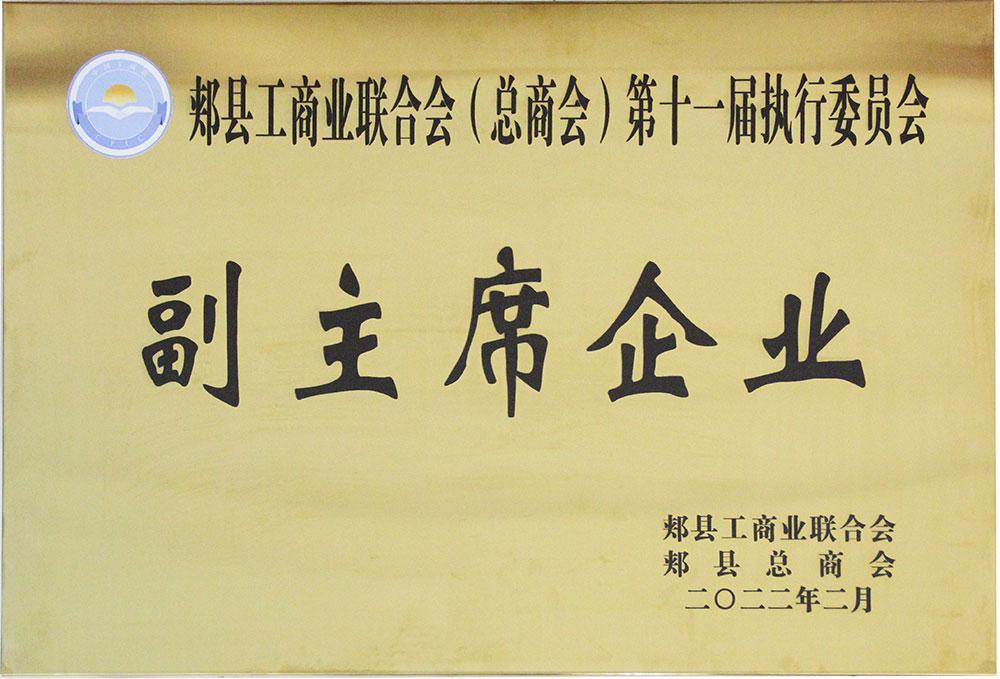 郏县工商业联合会(总商会)第十一届执行委员会
副主席企业
郏县工商业联合会
郏县总商会
二〇二二年二月